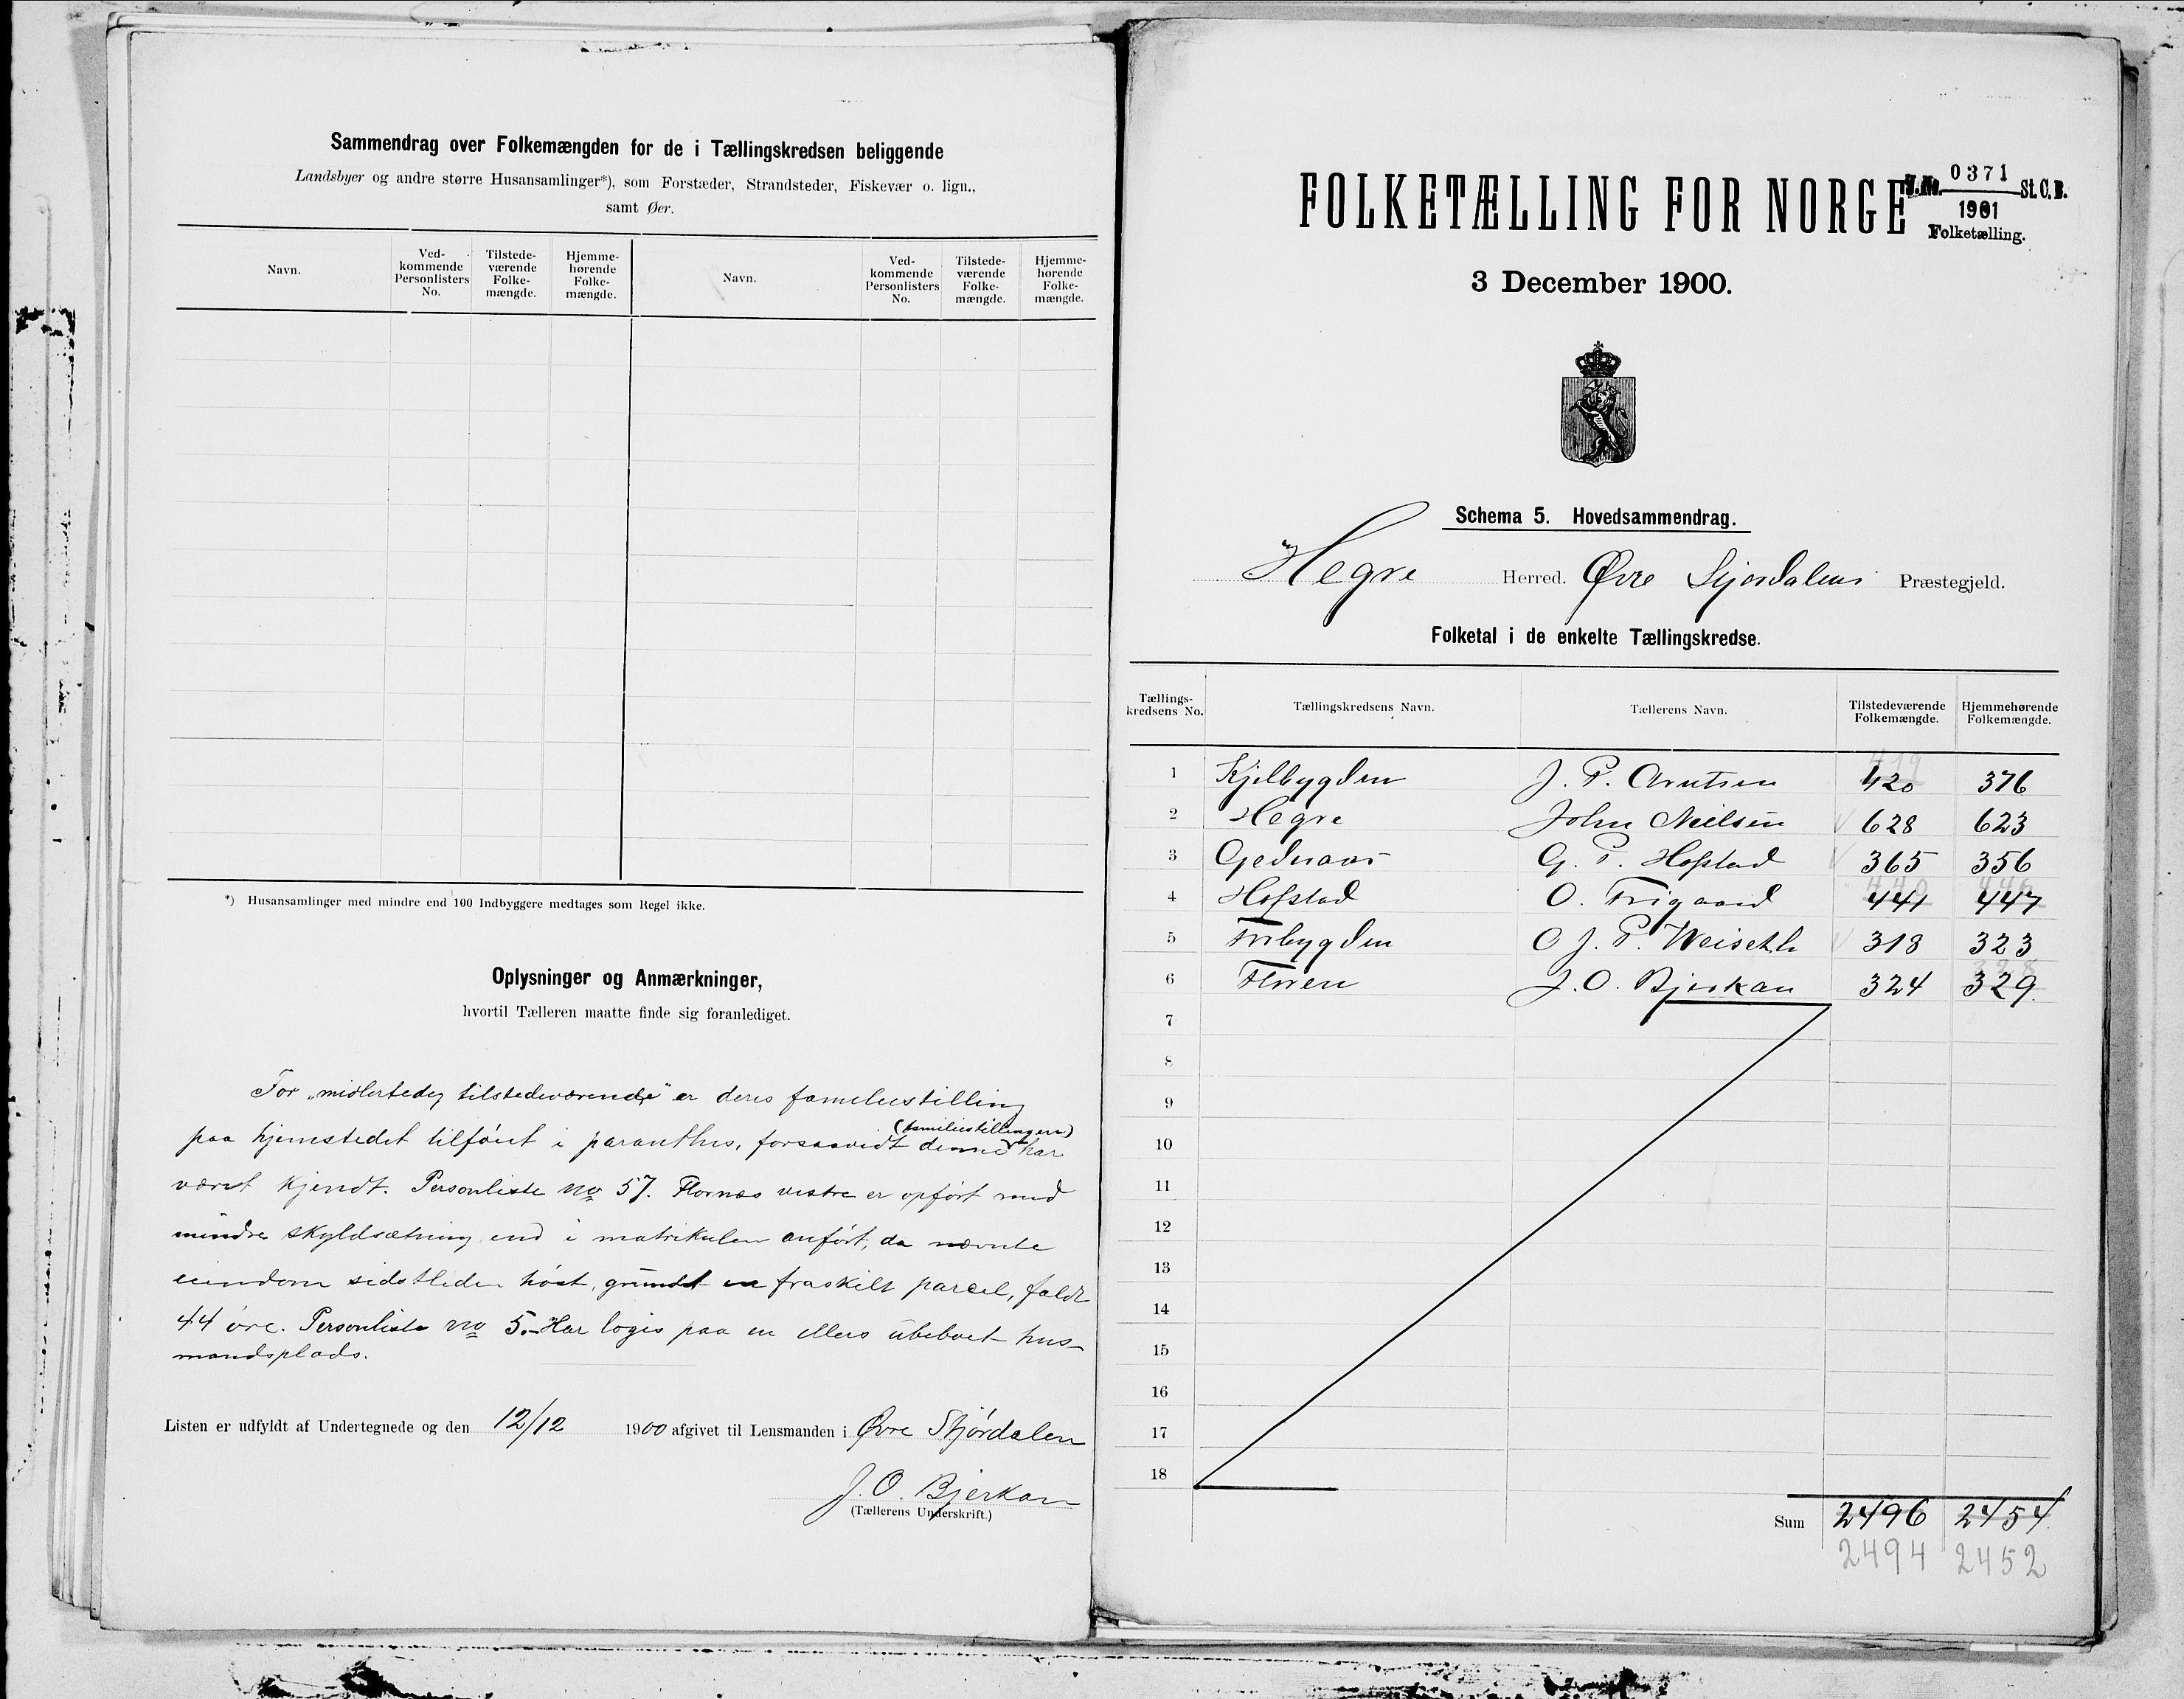 Sammendrag over Folkemængden for de i Tællingskredsen beliggende
Landsbyer og andre større Husansamlinger*), som Forstæder, Strandsteder, Fiskevær o. lign.,
samt Øer.
Navn. Ved-kommende Personlisters No. Tilstede-værende Folke-mængde. Hjemme-hørende Folke-mængde. Navn. Ved-kommende Personlisters No. Tilstede-værende Folke-mængde. Hjemme-hørende Folke-mængde.
*) Husansamlinger med mindre end 100 Indbyggere medtages som Regel ikke.
Oplysninger og Anmærkninger,
hvortil Tælleren maatte finde sig foranlediget.
For „midlertedig tilstedeværende" er deres familiestilling
(familiestillingen)
paa hjemstedet tilføiet i paranthes, forsaavidt denne har
været kjendt. Personliste No 57. Flornes vestre er opført med
mindre skyldsætning end i matrikulen anført, da nævnte
eiendom sidstleden høst, grundet en fraskilt parcel, faldt
44 øre. Personliste No 5. Har logis paa en ellers ubeboet hus-
mandsplads.
Listen er udfyldt af Undertegnede og den 12/12 1900 afgivet til Lensmanden i Øvre Stjørdalen
J. O. Bjerkan
(Tællerens Underskrift.)
FOLKETÆLLING FOR NORGE
J.No. 0371 St.C.B.
1901
Folketælling.
3 December 1900.
Schema 5. Hovedsammendrag.
Hegre Herred. Øvre Stjørdalens Præstegjeld.
Folketal i de enkelte Tællingskredse.
Tællings-kredsens No. Tællingskredsens Navn. Tællerens Navn. Tilstedeværende Folkemængde. Hjemmehørende Folkemængde.
419
1 Kjelbygden J. P. Arntsen 420 376
2 Hegre John Nielsen 628 623
3 Gednaas G. P. Hofstad 365 356
440 446
4 Hofstad O. Trigaard 441 447
5 O J. P. 318 323
328
6 Floren J. O. Bjerkan 324 329
7
8
9
10
11
12
13
14
15
16
17
18
Sum 2496 2454
2494 2452